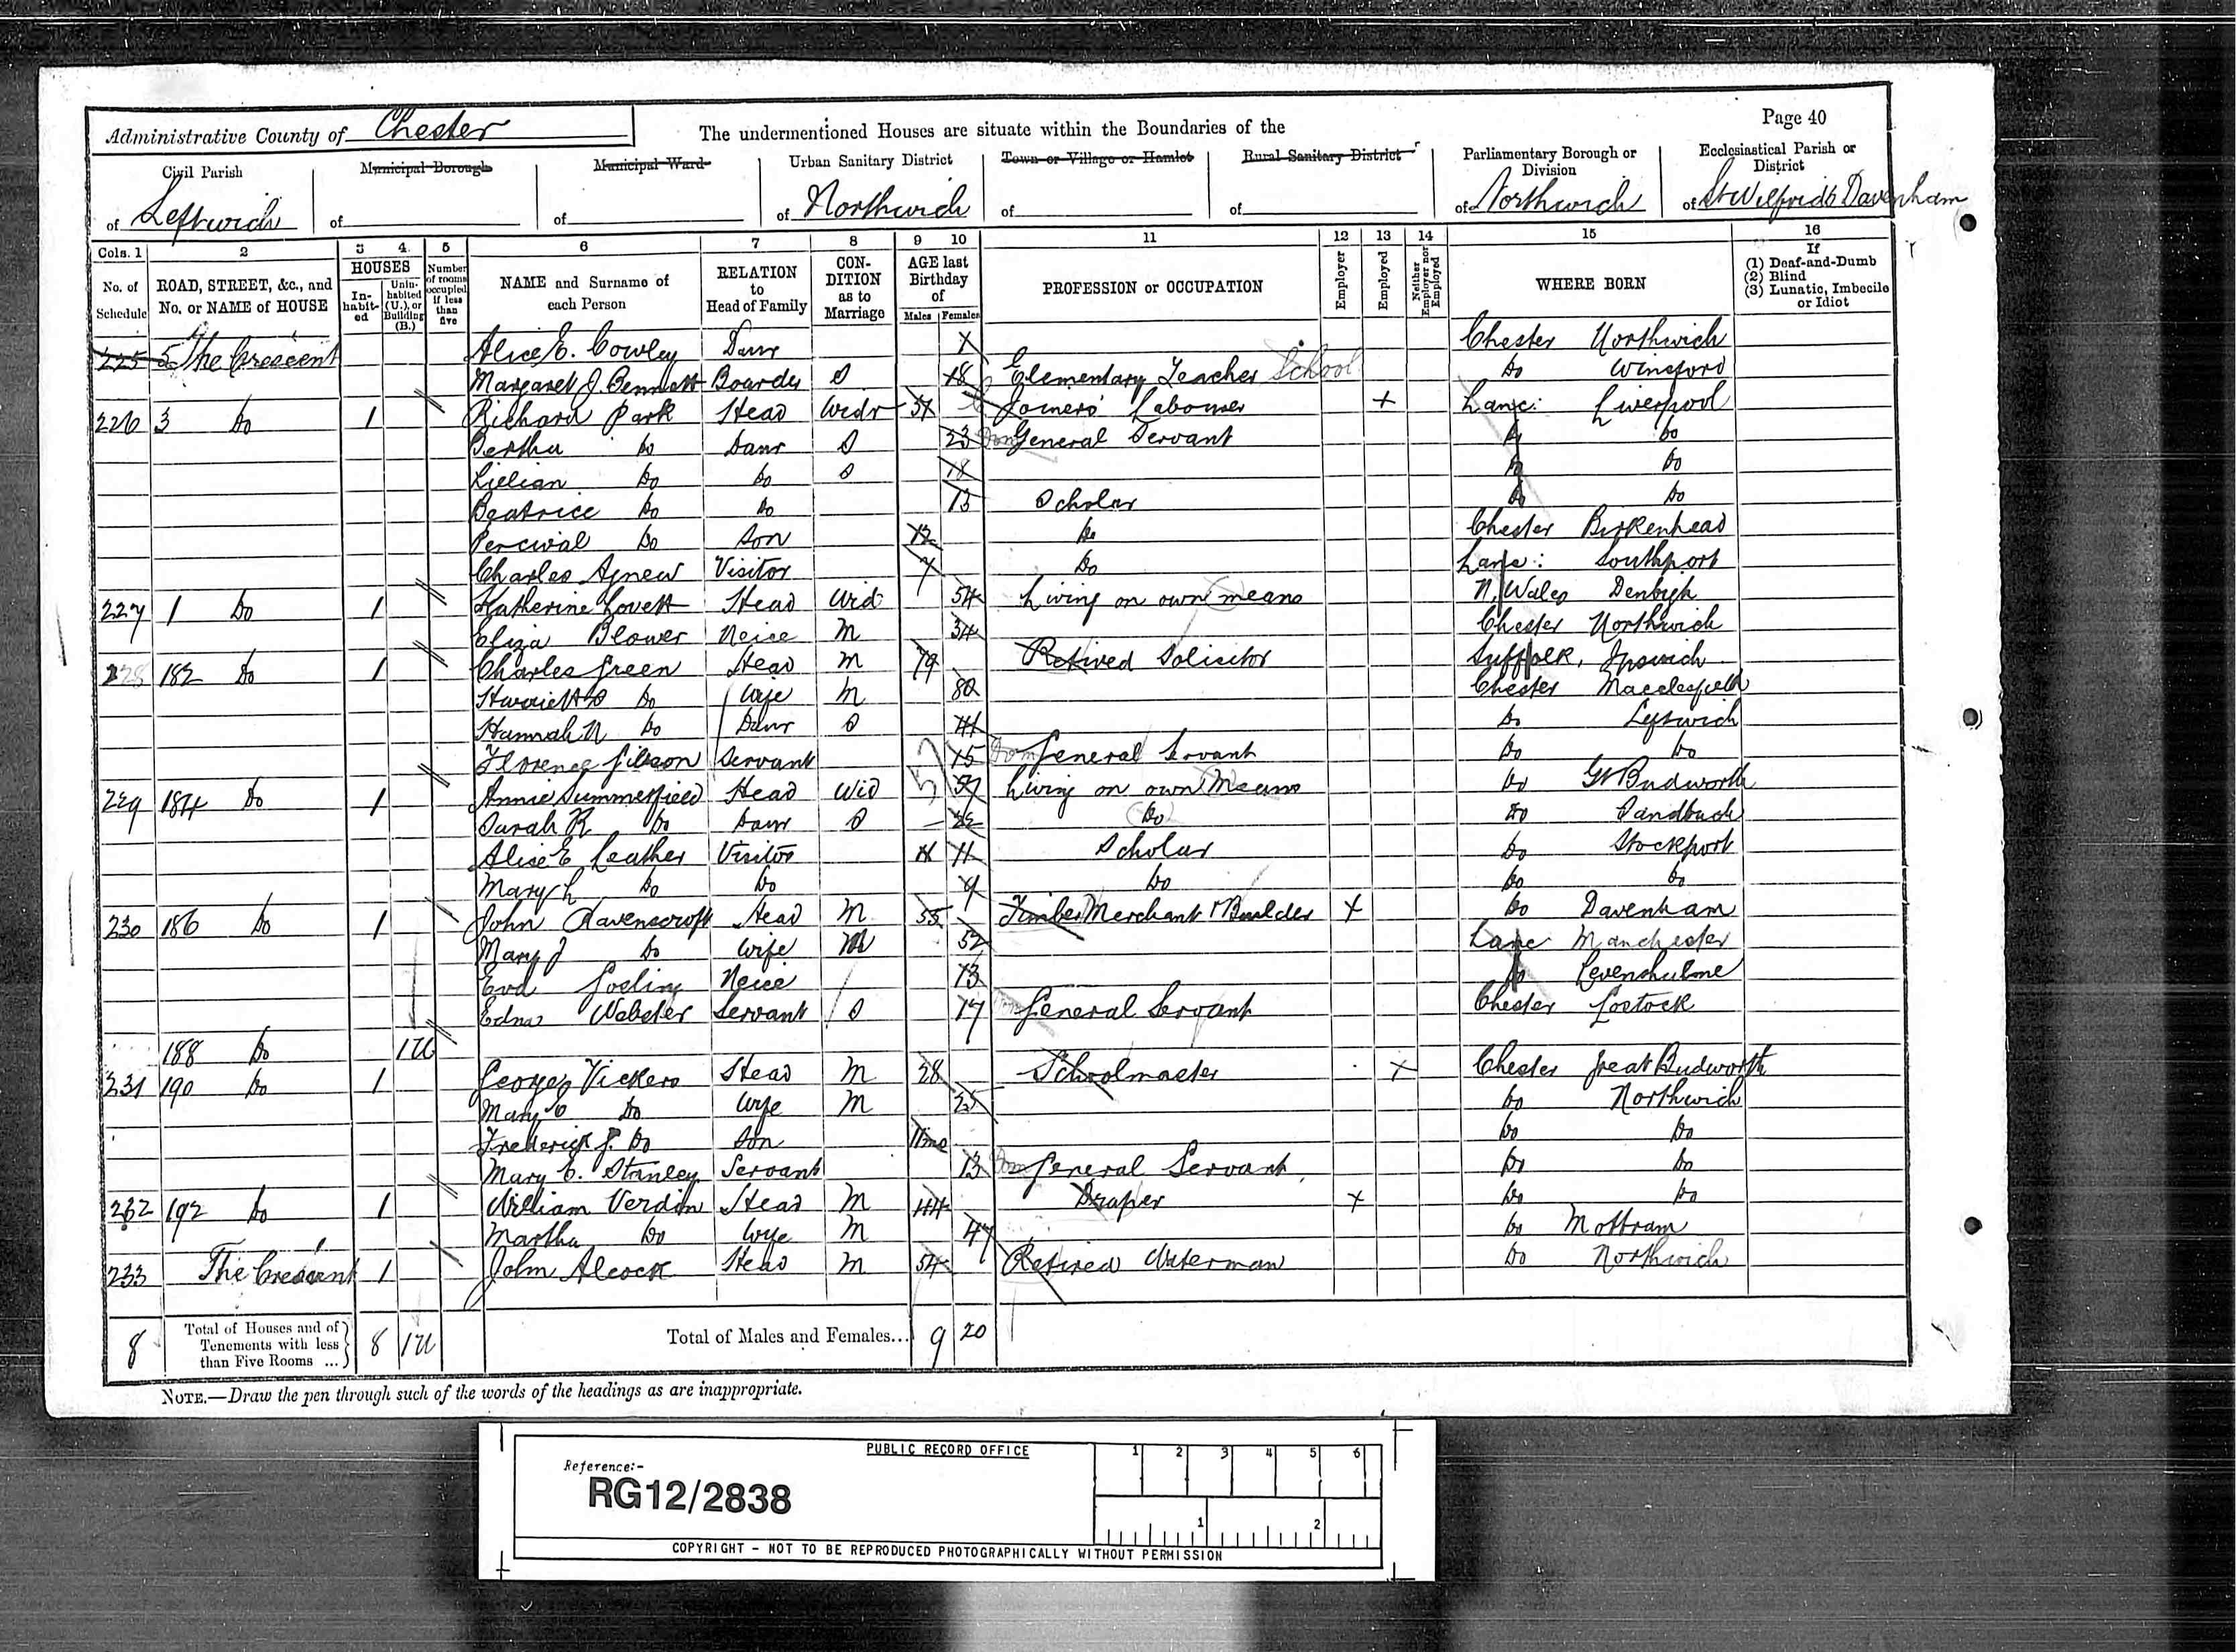 Administrative County of Chester
The undermentioned Houses are situate within the Boundaries of the
Page 40
Civil Parish of Leftwich
Municipal Borough of
Municipal Ward of
Urban Sanitary District of Northwich
Town or Village or Hamlet of
Rural Sanitary District of
Parliamentary Borough or Division of Northwich
Ecclesiastical Parish or District of St Wilfrids Davenham
Cols. 1 2 3 4 5 6 7 8 9 10 11 12 13 14 15 16
No. of Schedule
ROAD, STREET, &c., and No. or NAME of HOUSE
HOUSES
In-habit-ed
Unin-habited (U.), or Building (B.)
Number of rooms occupied if less than five
NAME and Surname of each Person
RELATION to Head of Family
CON-DITION as to Marriage
AGE last Birthday of
Males Females
PROFESSION or OCCUPATION
Employer
Employed
Neither Employer nor Employed
WHERE BORN
If
(1) Deaf-and-Dumb
(2) Blind
(3) Lunatic, Imbecile or Idiot
225 5 The Crescent Alice E. Cowley Daur Chester Northwich
Margaret J. Bennett Boarder S 18 Elementary Teacher School Do Winsford
226 3 Do 1 Richard Park Head Widr Joiners' Labourer X Lanc: Liverpool
Bertha Do Daur S 23 Dom General Servant Do Do
Lilian Do Do S 18 Do Do
Beatrice Do Do 13 Scholar Do Do
Percival Do Son 12 Do Chester Birkenhead
Charles Agnew Visitor 7 Do Lanc: Southport
227 1 Do 1 Katherine Lovett Head Wid 54 Living on own means N. Wales Denbigh
Eliza Blower Neice M 34 Chester Northwich
228 182 Do 1 Charles Green Head M 79 Retired Solicitor Suffolk, Ipswich
Harriett Do Wife M 80 Chester Macclesfield
Hannah N Do Daur S 41 Do Leftwich
Florence Gibson Servant 15 Dom General Servant Do Do
229 184 Do 1 Annie Summerfield Head Wid 57 Living on own Means Do Gt Budworth
Sarah R Do Daur S 22 Do Do Sandbach
Alice E Leather Visitor 11 Scholar Do Stockport
Mary L Do Do 9 Do Do Do
230 186 Do 1 John Ravenscroft Head M 55 Timber Merchant & Builder X Do Davenham
Mary J Do Wife M 52 Lanc Manchester
Eva Gosling Neice 13 Do Levenshulme
Edna Webster Servant S 17 General Servant Chester Lostock
188 Do 1U
231 190 Do 1 George Vickers Head M 28 Schoolmaster X Chester Great Budworth
Mary E Do Wife M 25 Do Northwich
Frederick G. Do Son 11mo Do Do
Mary E. Stanley Servant 13 Dom General Servant Do Do
232 192 Do 1 William Verdin Head M 44 Draper X Do Do
Martha Do Wife M 47 Do Mottram
233 The Crescent 1 John Alcock Head M 54 Retired Waterman Do Northwich
8 Total of Houses and of Tenements with less than Five Rooms ... 8 1U Total of Males and Females... 9 20
NOTE.—Draw the pen through such of the words of the headings as are inappropriate.
PUBLIC RECORD OFFICE
1 2 3 4 5 6
Reference:-
RG12/2838
1 2
COPYRIGHT - NOT TO BE REPRODUCED PHOTOGRAPHICALLY WITHOUT PERMISSION